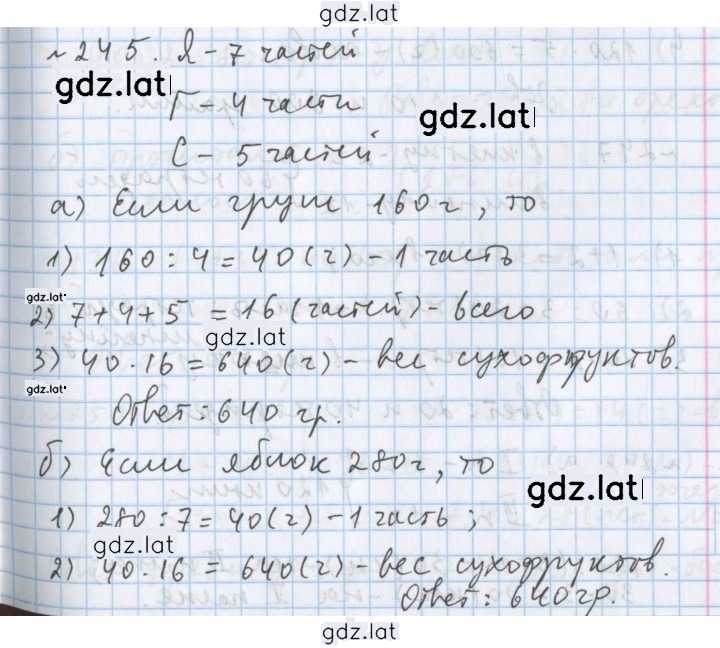 gdz.lat
№ 245. Я - 7 частей
gdz.lat
Г - 4 части
gdz.lat
С - 5 частей
а) Если груш 160 г, то
1) 160 : 4 = 40 (г) - 1 часть
gdz.lat
2) 7 + 4 + 5 = 16 (частей) - всего
gdz.lat
3) 40 · 16 = 640 (г) - вес сухофруктов.
gdz.lat
Ответ: 640 гр.
б) Если яблок 280 г, то
gdz.lat
1) 280 : 7 = 40 (г) - 1 часть;
gdz.lat
2) 40 · 16 = 640 (г) - вес сухофруктов.
Ответ: 640 гр.
gdz.lat